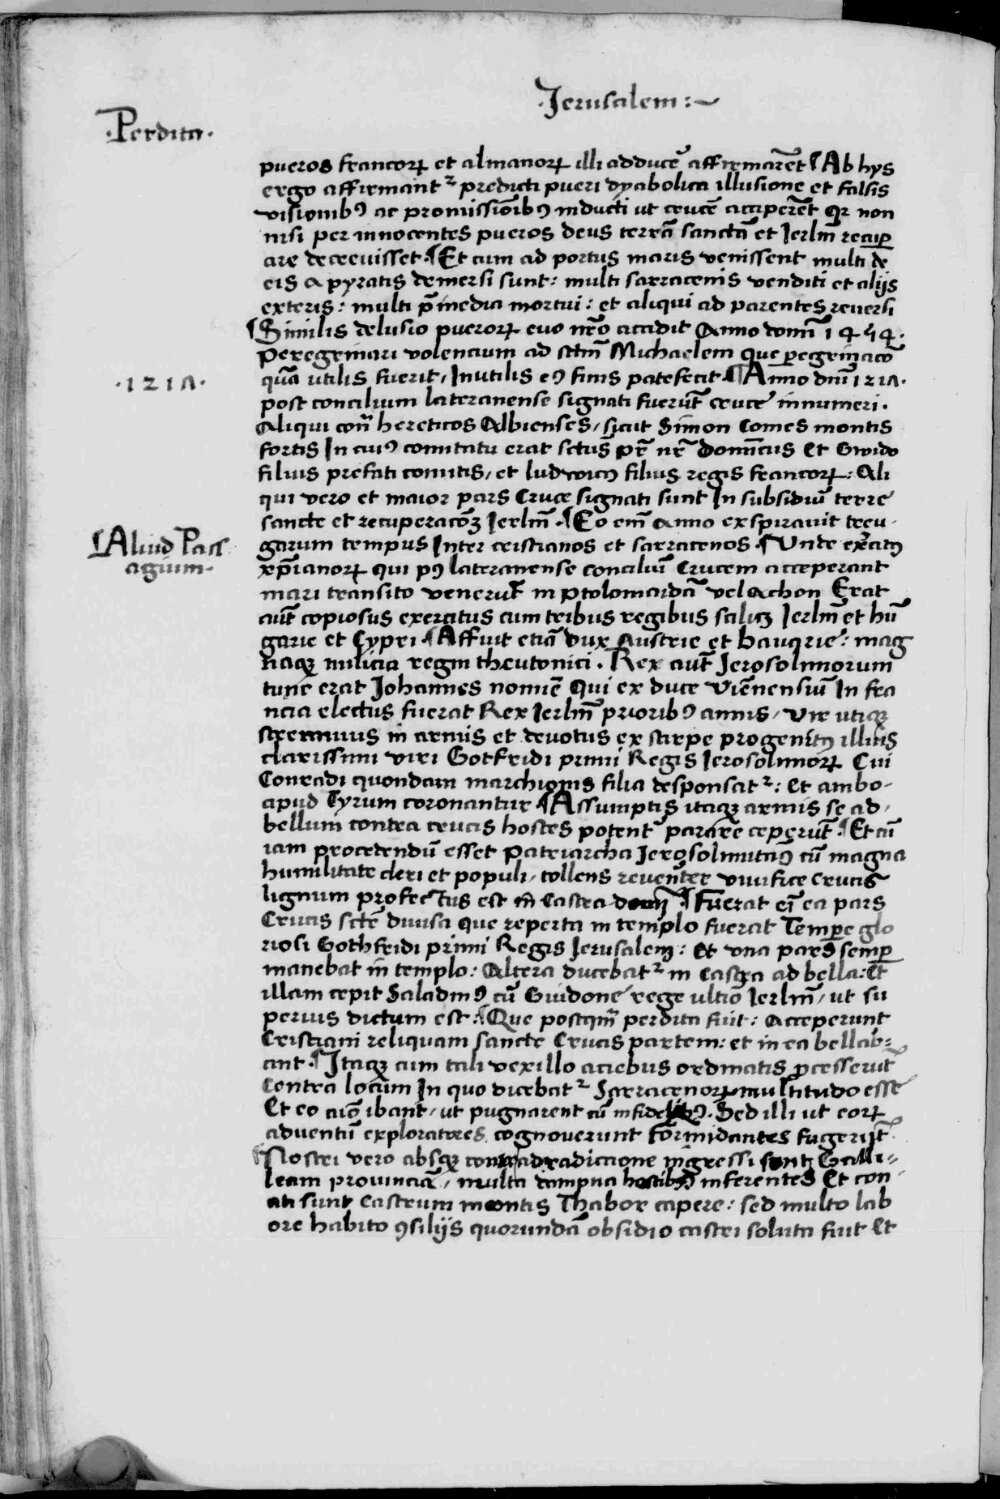 ·Jerusalem:~
·Perdita·
pueros francoꝝ et almanoꝝ illi adducē affirmarēt ¶ Ab hys
ergo affirmantᷣ predicti pueri dyabolica illusione et falsis
visionibꝰ ac promissiōibꝰ inducti ut crucē acciperēt qꝛ non
nisi per innocentes pueros deus terrā sanctā et Jerlm̄ recuꝑ
are decrevisset ¶ Et cum ad portus maris venissent multi de
eis a pyratis demersi sunt: multi sarracenis venditi et alijs
exteris: multi p̄ inedia mortui: et aliqui ad parentes reversi
¶ Similis delusio pueroꝝ evo nr̄o accidit Anno domī 1454·
Peregrinari volencium ad sctm̄ Michaelem que ꝑegrinacō
·1217·
quā utilis fuerit, Inutilis eꝰ finis patefecit ¶ Anno dm̄ 1217·
post concilium lateranense signati fuerūt crucē innumeri·
Aliqui con̄ hereticos Albienses, sicut Simon Comes montis
fortis In cuiꝰ comitatu erat sctūs pr̄ nr̄ Dominicus Et Gwido
filius prefati comitis, et ludwicꝰ filius regis francoꝝ: Ali
qui vero et maior pars Cruce signati sunt In subsidiū terre
sancte et recuperacōꝫ Jerlm̄ · ¶ Eo em̄ Anno expiravit treu-
¶ Aliud Pass
garum tempus Inter cristianos et sarracenos · ¶ Unde exercitꝰ
agium-
xp̄ianoꝝ qui pꝰ lateranense conciliū Crucem acceperant
mari transito venerūt in ptolomaidā vel Achon Erat
aūt copiosus exercitus cum tribus regibus scilicꝫ Jerlm̄ et hū
garie et Cypri · ¶ Affuit etiā dux Austrie et bauarie: mag
naqꝫ milicia regni theutonici · Rex aūt Jerosolimorum
tunc erat Johannes nomīe Qui ex duce Viēnensiū In fra
ncia electus fuerat Rex Jerlm̄ prioribꝰ annis, vir utiqꝫ
strennuus in armis et devotus ex stirpe progenitꝰ illius
clarissimi viri Gotfridi primi Regis Jerosolimoꝝ Cui
Conradi quondam marchionis filia desponsatᷣ: Et ambo-
apud Tyrum coronantur ¶ Assumptis itaqꝫ armis se ad,
bellum contra crucis hostes potentᷣ parare ceperūt · ¶ Et cū
iam procedendū esset Patriarcha Jerosolimitanꝰ cū magna
humilitate cleri et populi, tollens reverēter vivifice Crucis
lignum profectus est in Castra domī ¶ Fuerat eī ea pars
Crucis scte divisa que reperta in templo fuerat Tempore glo
riosi Gothfridi primi Regis Jerusalem: Et una pars semꝑ
manebat in templo: Altera ducebatᷣ in Castra ad bella: Et
illam cepit Saladinꝰ cū Guidone rege ultiō Jerlm̄, ut su
perius dictum est: ¶ Que postqm̄ perdita fuit: acceperunt
Cristiani reliquam sancte Crucis partem: et in ea bellab=
ant · ¶ Itaqꝫ cum tali vexillo aciebus ordinatis ꝓcesserūt
Contra locum In quo dicebatᷣ Sarracenoꝝ multitudo esse
Et eo aīo ibant, ut pugnarent cū infidelibꝰ. Sed illi ut eoꝝ
adventū exploratores cognoverunt formidantes fugerūt
¶ Nostri vero absqꝫ contradiccione ingressi sunt Galli=
leam provinciā, multa dampna hostibꝰ inferentes Et con-
ati sunt Castrum montis Thabor capere: sed multo lab
ore habito ꝯsilijs quorundā obsidio castri soluta fuit Et